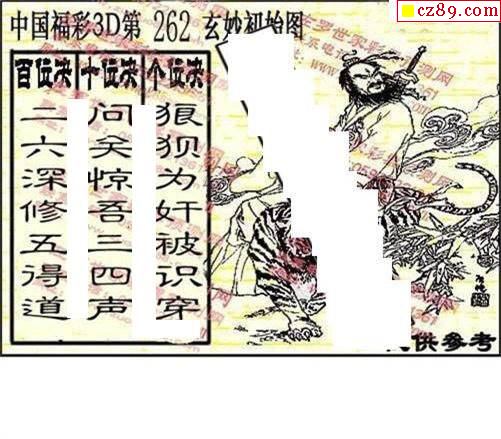 cz89.com
中国福彩3D第 262 玄妙初始图
百位决 十位决 个位决
二六深修五得道
问关惊吾三四声
狼狈为奸被识穿
供参考